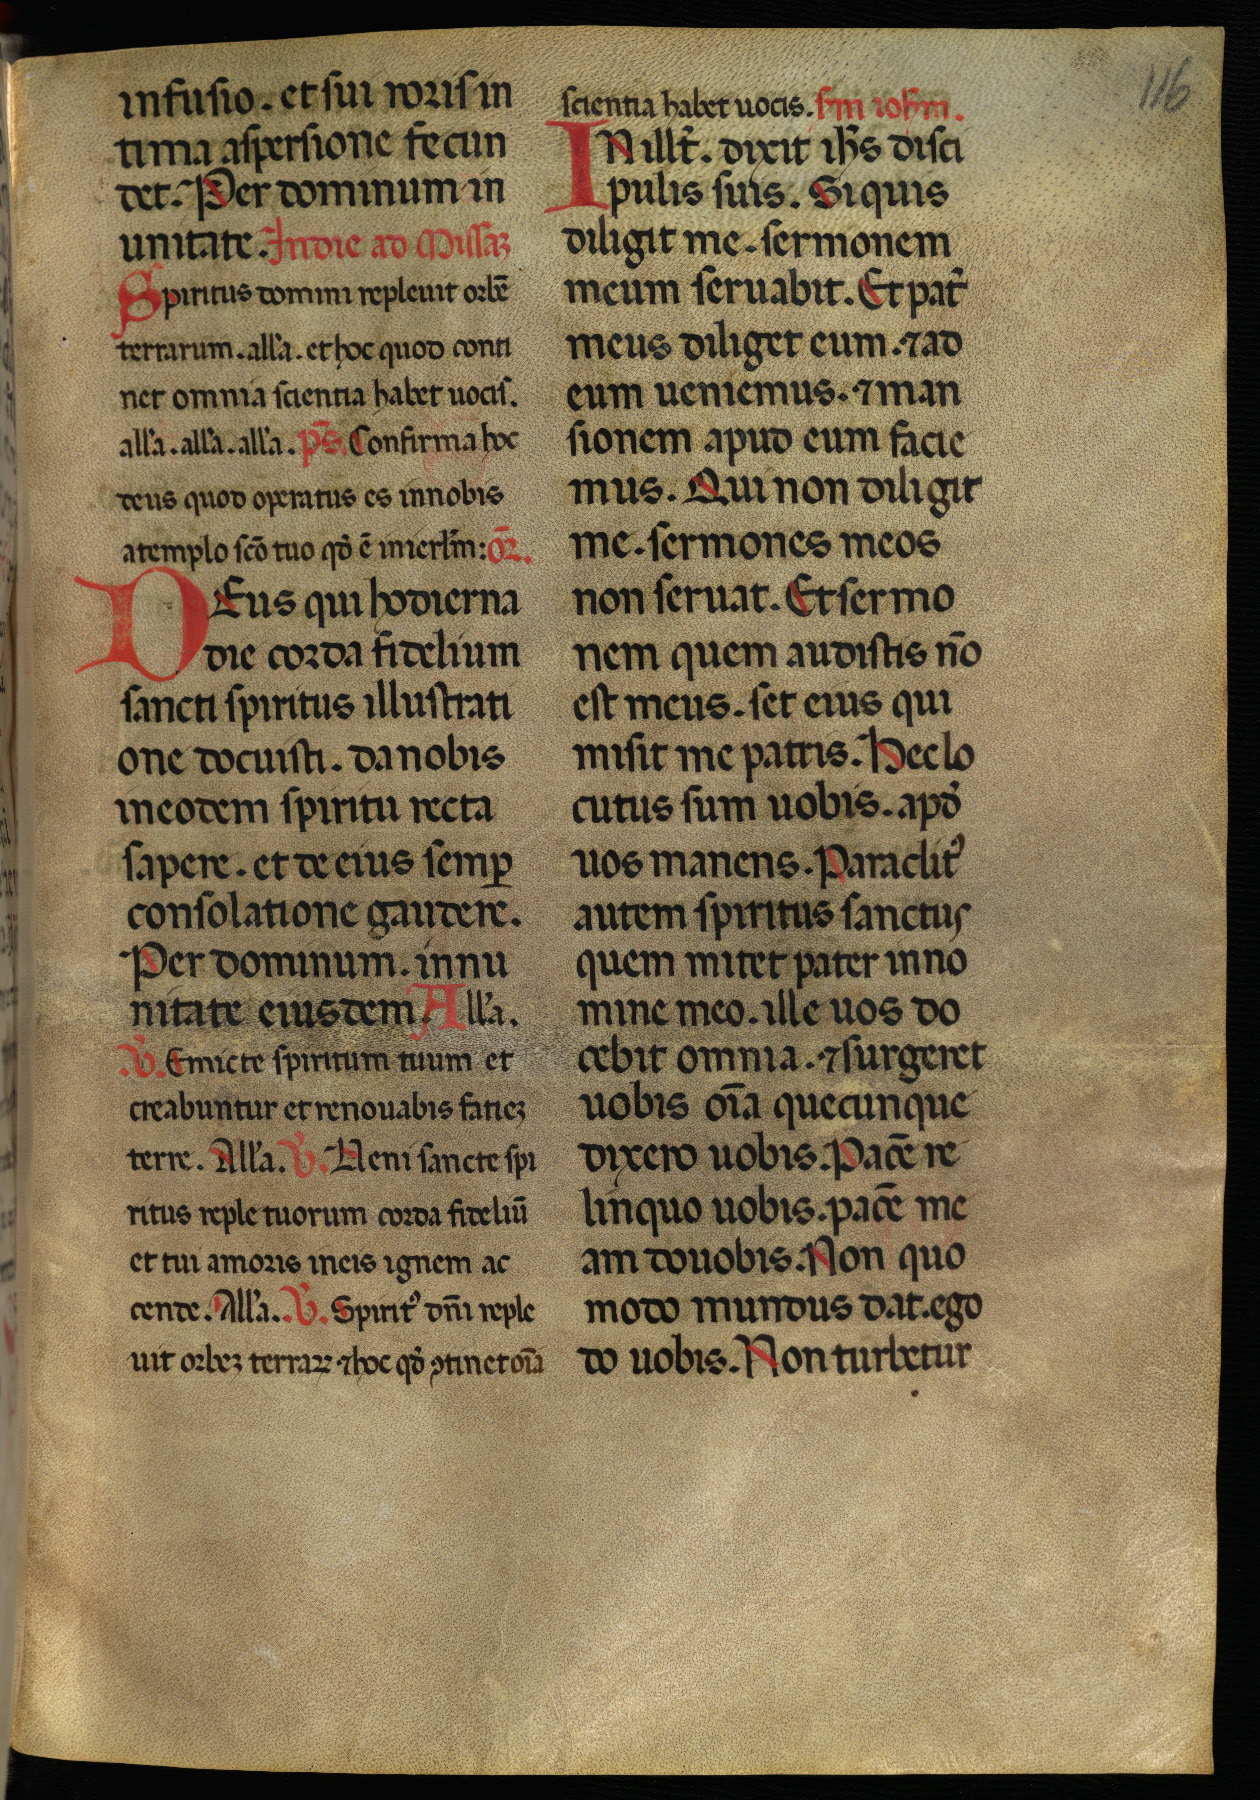 116
infusio. et sui roris in
tima aspersione fecun
det. Per dominum in
unitate. In die ad Missaz
Spiritus domini repleuit orbē
terrarum. all'a. et hoc quod conti
net omnia scientia habet uocis.
all'a. all'a. all'a. ps̄. Confirma hoc
deus quod operatus es in nobis
a templo scō tuo qd̄ ē in ierłm: or̄.
DEus qui hodierna
die corda fidelium
sancti spiritus illustrati
one docuisti. da nobis
in eodem spiritu recta
sapere. et de eius semꝑ
consolatione gaudere.
Per dominum. in nu
nitate eiusdem. All'a.
℣. Emicte spiritum tuum et
creabuntur et renouabis fatiez
terre. All'a. ℣. Ueni sancte spi
ritus reple tuorum corda fideliū
et tui amoris in eis ignem ac
cende. All'a. ℣. Spiritꝰ dn̄i reple
uit orbez terraꝝ ⁊ hoc qd̄ ꝯtinet oīa
scientia habet uocis. sm̄ ioh̄m.
IN ill't̄. dixit ih̄s disci
pulis suis. Si quis
diligit me. sermonem
meum seruabit. Et pat̄
meus diliget eum. ⁊ ad
eum ueniemus. ⁊ man
sionem apud eum facie
mus. Qui non diligit
me. sermones meos
non seruat. Et sermo
nem quem audistis nō
est meus. set eius qui
misit me patris. Hec lo
cutus sum uobis. apd̄
uos manens. Paraclitꝰ
autem spiritus sanctus
quem mitet pater in no
mine meo. ille uos do
cebit omnia. ⁊ surgeret
uobis oīa quecunque
dixero uobis. Pacē re
linquo uobis. pacē me
am do uobis. Non quo
modo mundus dat. ego
do uobis. Non turbetur